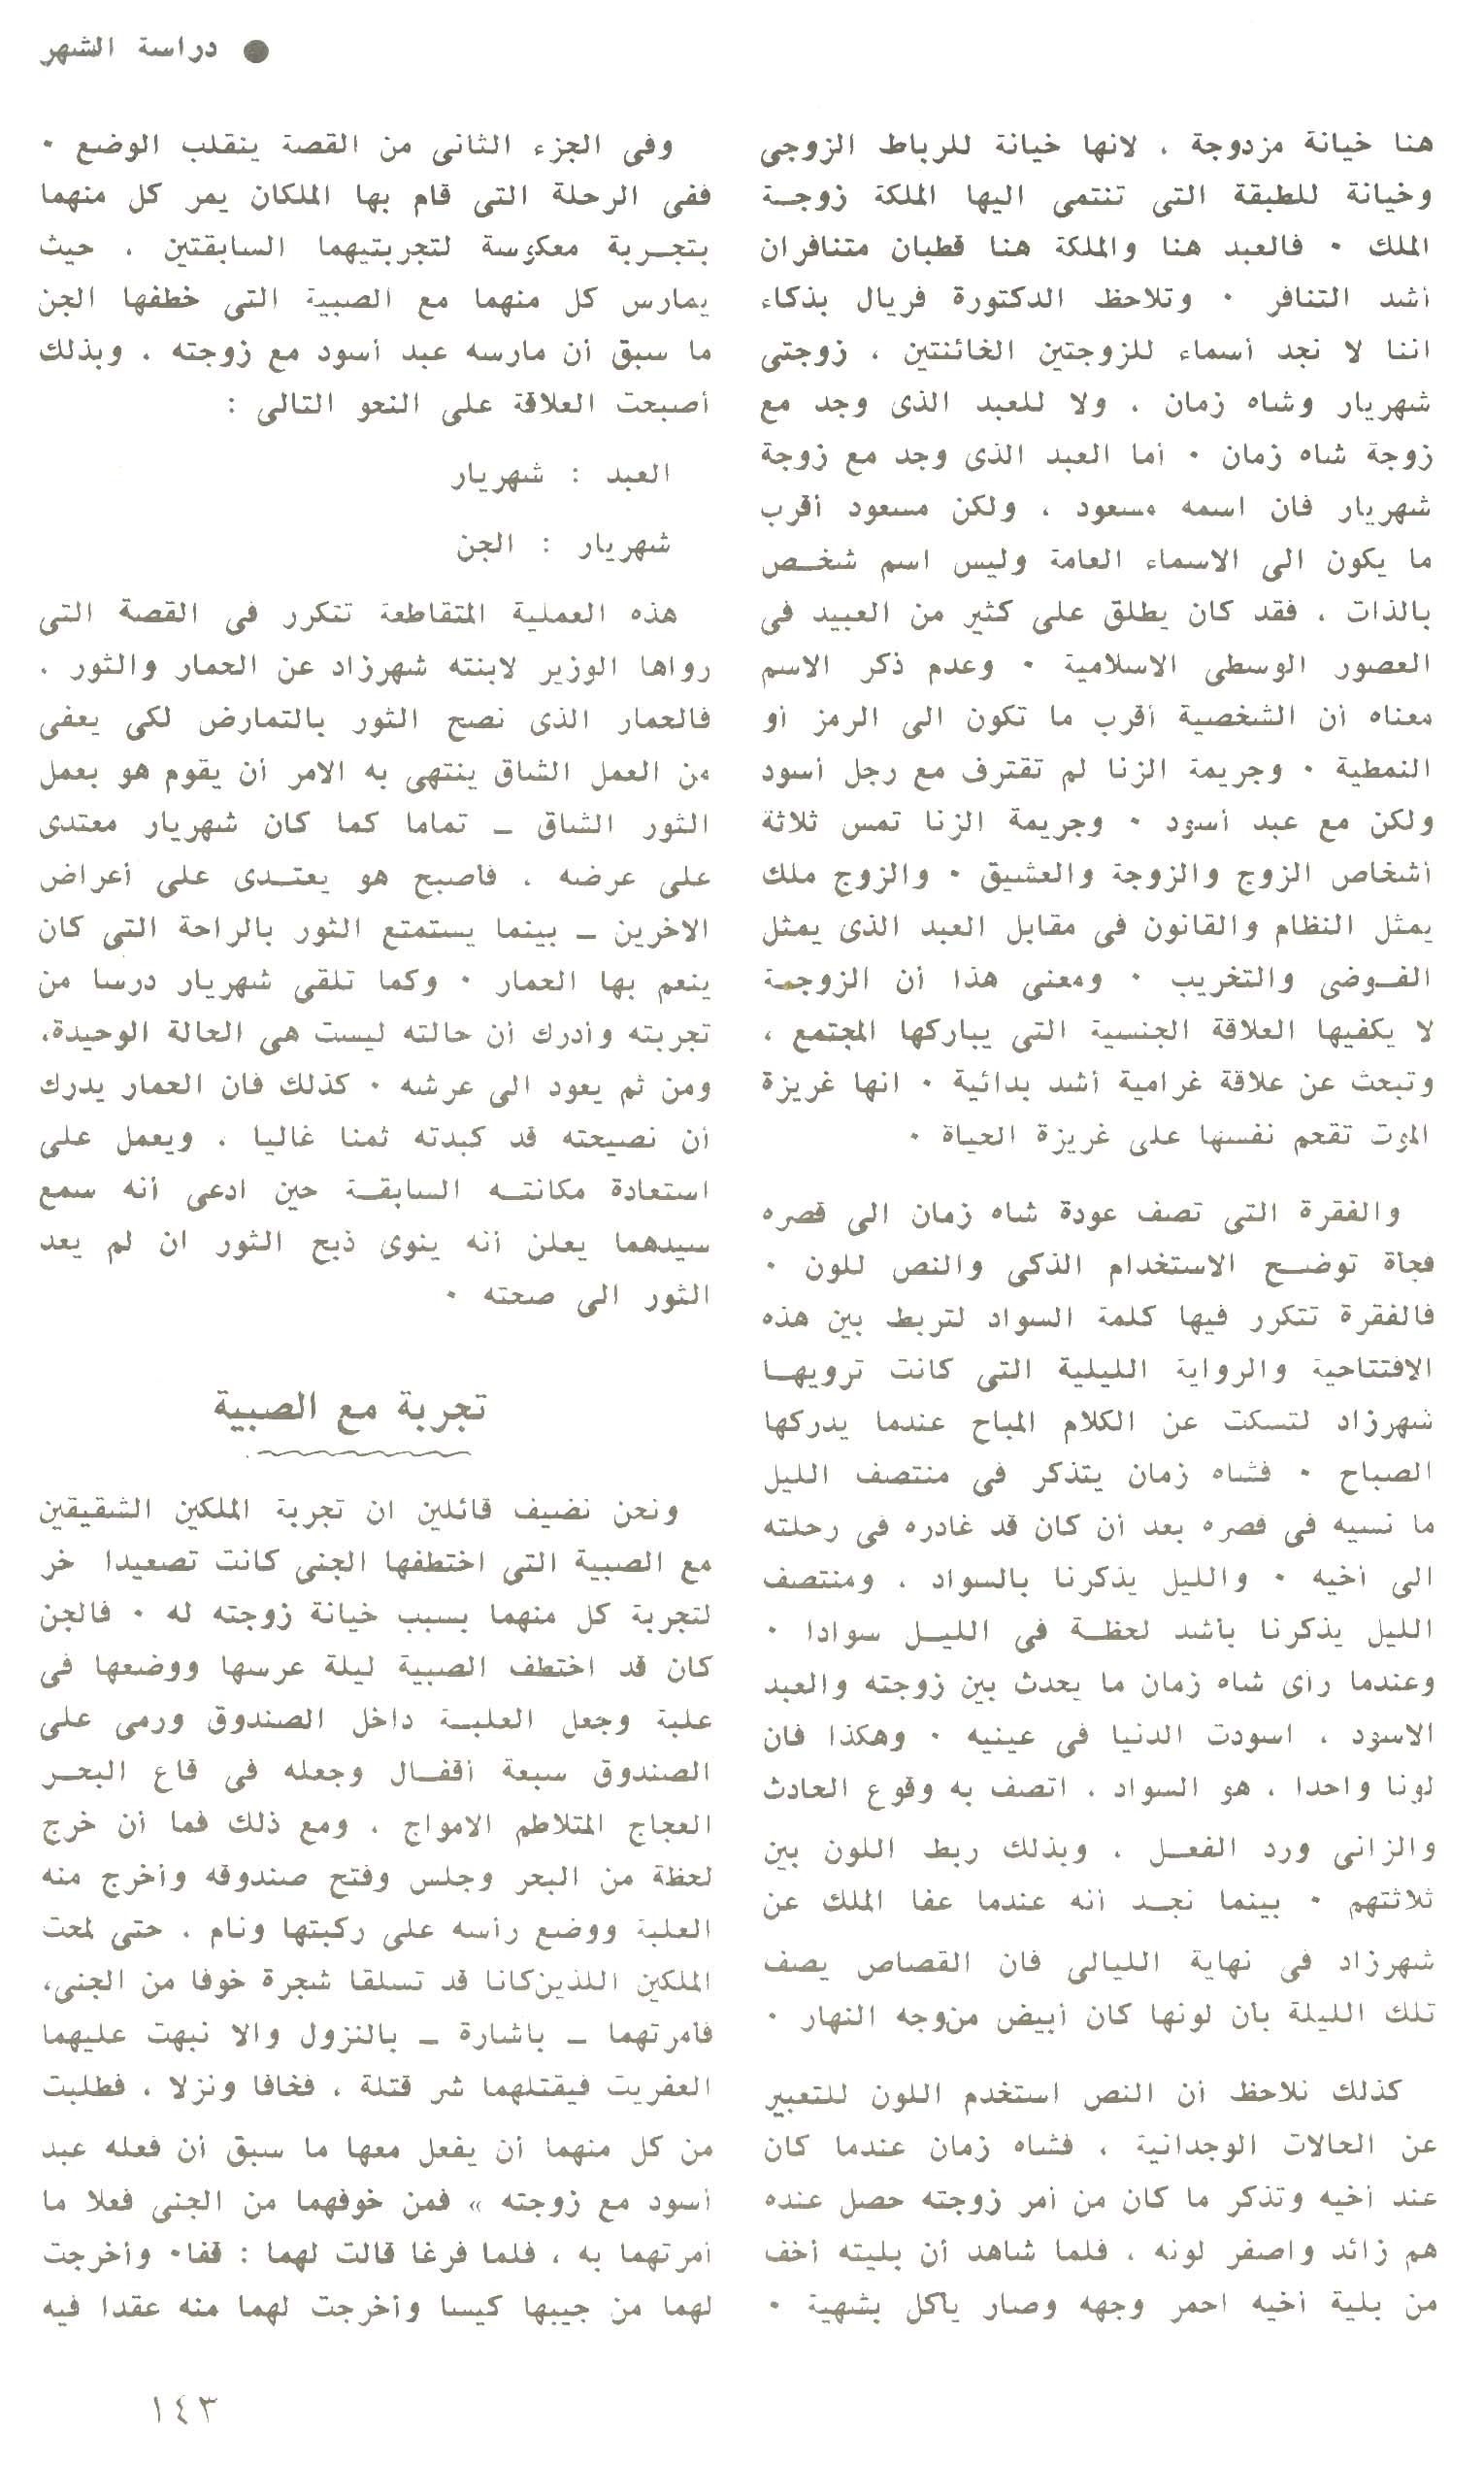 ● دراسة الشهر
هنا خيانة مزدوجة ، لانها خيانة للرباط الزوجى
وخيانة للطبقة التى تنتمى اليها الملكة زوجـة
الملك ٠ فالعبد هنا والملكة هنا قطبان متنافران
أشد التنافر ٠ وتلاحظ الدكتورة فريال بذكاء
اننا لا نجد أسماء للزوجتين الخائنتين ، زوجتى
شهريار وشاه زمان ، ولا للعبد الذى وجد مع
زوجة شاه زمان ٠ أما العبد الذى وجد مع زوجة
شهريار فان اسمه مسعود ، ولكن مسعود أقرب
ما يكون الى الاسماء العامة وليس اسم شخـص
بالذات ، فقد كان يطلق على كثير من العبيد فى
العصور الوسطى الاسلامية ٠ وعدم ذكر الاسم
معناه أن الشخصية أقرب ما تكون الى الرمز أو
النمطية ٠ وجريمة الزنا لم تقترف مع رجل أسود
ولكن مع عبد أسود ٠ وجريمة الزنا تمس ثلاثة
أشخاص الزوج والزوجة والعشيق ٠ والزوج ملك
يمثل النظام والقانون فى مقابل العبد الذى يمثل
الفـوضى والتخريب ٠ ومعنى هذا أن الزوجـة
لا يكفيها العلاقة الجنسية التى يباركها المجتمع ،
وتبحث عن علاقة غرامية أشد بدائية ٠ انها غريزة
الموت تقحم نفسها على غريزة الحياة ٠
والفقرة التى تصف عودة شاه زمان الى قصره
فجأة توضـح الاستخدام الذكى والنص للون ٠
فالفقرة تتكرر فيها كلمة السواد لتربط بين هذه
الافتتاحية والرواية الليلية التى كانت ترويهـا
شهرزاد لتسكت عن الكلام المباح عندما يدركها
الصباح ٠ فشاه زمان يتذكر فى منتصف الليل
ما نسيه فى قصره بعد أن كان قد غادره فى رحلته
الى أخيه ٠ والليل يذكرنا بالسواد ، ومنتصف
الليل يذكرنا بأشد لحظـة فى الليـل سوادا ٠
وعندما رأى شاه زمان ما يحدث بين زوجته والعبد
الاسود ، اسودت الدنيا فى عينيه ٠ وهكذا فان
لونا واحدا ، هو السواد ، اتصف به وقوع الحادث
والزانى ورد الفعـل ، وبذلك ربط اللون بين
ثلاثتهم ٠ بينما نجـد أنه عندما عفا الملك عن
شهرزاد فى نهاية الليالى فان القصاص يصف
تلك الليلة بأن لونها كان أبيض من وجه النهار ٠
كذلك نلاحظ أن النص استخدم اللون للتعبير
عن الحالات الوجدانية ، فشاه زمان عندما كان
عند أخيه وتذكر ما كان من أمر زوجته حصل عنده
هم زائد واصفر لونه ، فلما شاهد أن بليته أخف
من بلية أخيه احمر وجهه وصار يأكل بشهية ٠
وفى الجزء الثانى من القصة ينقلب الوضع ٠
ففى الرحلة التى قام بها الملكان يمر كل منهما
بتجـربة معكوسة لتجربتيهما السابقتين ، حيث
يمارس كل منهما مع الصبية التى خطفها الجن
ما سبق أن مارسه عبد أسود مع زوجته ، وبذلك
أصبحت العلاقة على النحو التالى :
العبد : شهريار
شهريار : الجن
هذه العملية المتقاطعة تتكرر فى القصة التى
رواها الوزير لابنته شهرزاد عن الحمار والثور ،
فالحمار الذى نصح الثور بالتمارض لكى يعفى
من العمل الشاق ينتهى به الامر أن يقوم هو بعمل
الثور الشاق ـ تماما كما كان شهريار معتدى
على عرضه ، فاصبح هو يعتـدى على أعراض
الاخرين ـ بينما يستمتع الثور بالراحة التى كان
ينعم بها الحمار ٠ وكما تلقى شهريار درسا من
تجربته وأدرك أن حالته ليست هى الحالة الوحيدة،
ومن ثم يعود الى عرشه ٠ كذلك فان الحمار يدرك
أن نصيحته قد كبدته ثمنا غاليا ، ويعمل على
استعادة مكانتـه السابقـة حين ادعى أنه سمع
سيدهما يعلن أنه ينوى ذبح الثور ان لم يعد
الثور الى صحته ٠
تجربة مع الصبية
ونحن نضيف قائلين ان تجربة الملكين الشقيقين
مع الصبية التى اختطفها الجنى كانت تصعيدا خر
لتجربة كل منهما بسبب خيانة زوجته له ٠ فالجن
كان قد اختطف الصبية ليلة عرسها ووضعها فى
علبة وجعل العلبـة داخل الصندوق ورمى على
الصندوق سبعة أقفـال وجعله فى قاع البحـر
العجاج المتلاطم الامواج ، ومع ذلك فما أن خرج
لحظة من البحر وجلس وفتح صندوقه وأخرج منه
العلبة ووضع رأسه على ركبتها ونام ، حتى لمحت
الملكين اللذين كانا قد تسلقا شجرة خوفا من الجنى،
فأمرتهما ـ باشارة ـ بالنزول والا نبهت عليهما
العفريت فيقتلهما شر قتلة ، فخافا ونزلا ، فطلبت
من كل منهما أن يفعل معها ما سبق أن فعله عبد
أسود مع زوجته » فمن خوفهما من الجنى فعلا ما
أمرتهما به ، فلما فرغا قالت لهما : قفا٠ وأخرجت
لهما من جيبها كيسا وأخرجت لهما منه عقدا فيه
١٤٣